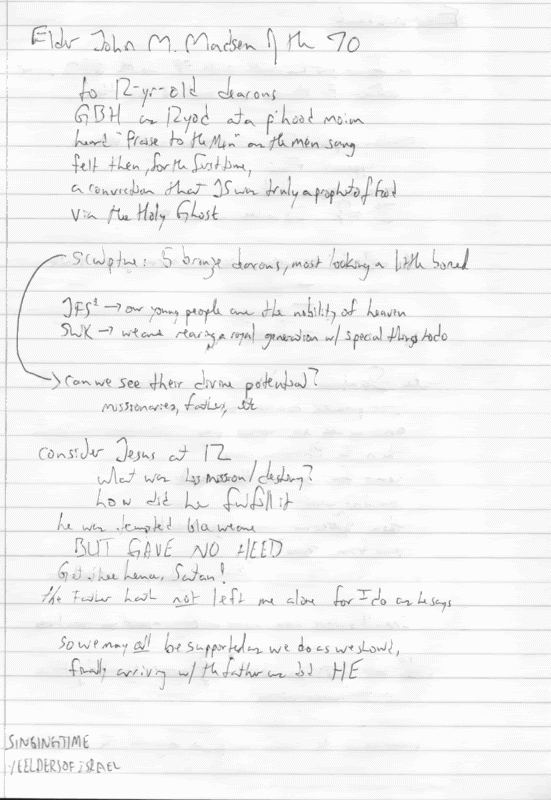 Elder John M. Madsen of the 70
to 12-yr-old deacons
GBH as 12yod at a p'hood meeting
heard "Praise to the Man" as the men sang
felt then, for the first time,
a conviction that JS was truly a prophet of God
via the Holy Ghost
Sculpture: 5 bronze deacons, most looking a little bored
JFS¹ → our young people are the nobility of heaven
SWK → we are rearing a royal generation w/ special things to do
→ can we see their divine potential?
missionaries, fathers, etc
consider Jesus at 12
what was his mission/destiny?
how did he fulfill it
he was tempted like we are
BUT GAVE NO HEED
Get thee hence, Satan!
the Father hath not left me alone for I do as he says
so we may all be supported as we do as we should,
finally arriving w/ the father as did HE
SINGINGTIME
YEELDERSOFISRAEL